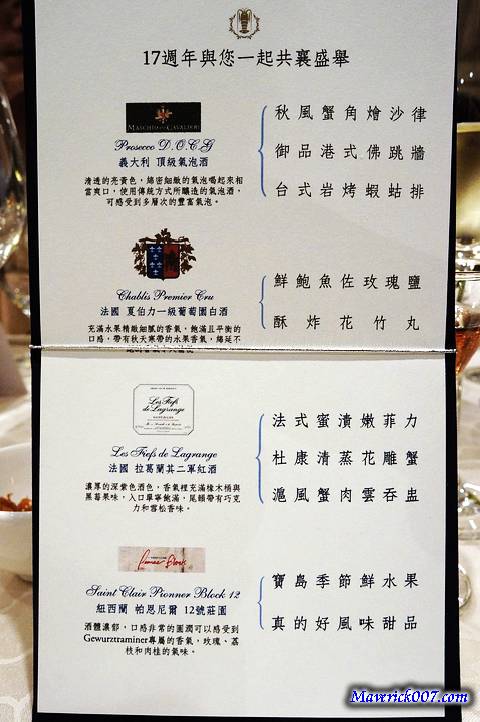 17週年與您一起共襄盛舉
MASCHIO DEI CAVALIERI
Prosecco D.O.C.G
義大利 頂級氣泡酒
清透的亮黃色，綿密細緻的氣泡喝起來相
當爽口，使用傳統方式所釀造的氣泡酒，
可感受到多層次的豐富氣泡。
秋風蟹角燴沙律
御品港式佛跳牆
台式岩烤蝦蛄排
Chablis Premier Cru
法國 夏伯力一級葡萄園白酒
充滿水果精緻細膩的香氣，飽滿且平衡的
口感，帶有秋天寒帶的水果香氣，綿延不
鮮鮑魚佐玫瑰鹽
酥炸花竹丸
Les Fiefs
de Lagrange
Les Fiefs de Lagrange
法國 拉葛蘭其二軍紅酒
濃厚的深紫色酒色，香氣裡充滿橡木桶與
黑莓果味，入口單寧飽滿，尾韻帶有巧克
力和雪松香味。
法式蜜漬嫩菲力
杜康清蒸花雕蟹
滬風蟹肉雲吞盅
Saint Clair Pionner Block 12
紐西蘭 帕恩尼爾 12號莊園
酒體濃郁，口感非常的圓潤可以感受到
Gewurztraminer專屬的香氣，玫瑰、荔
枝和肉桂的氣味。
寶島季節鮮水果
真的好風味甜品
Maverick007.com